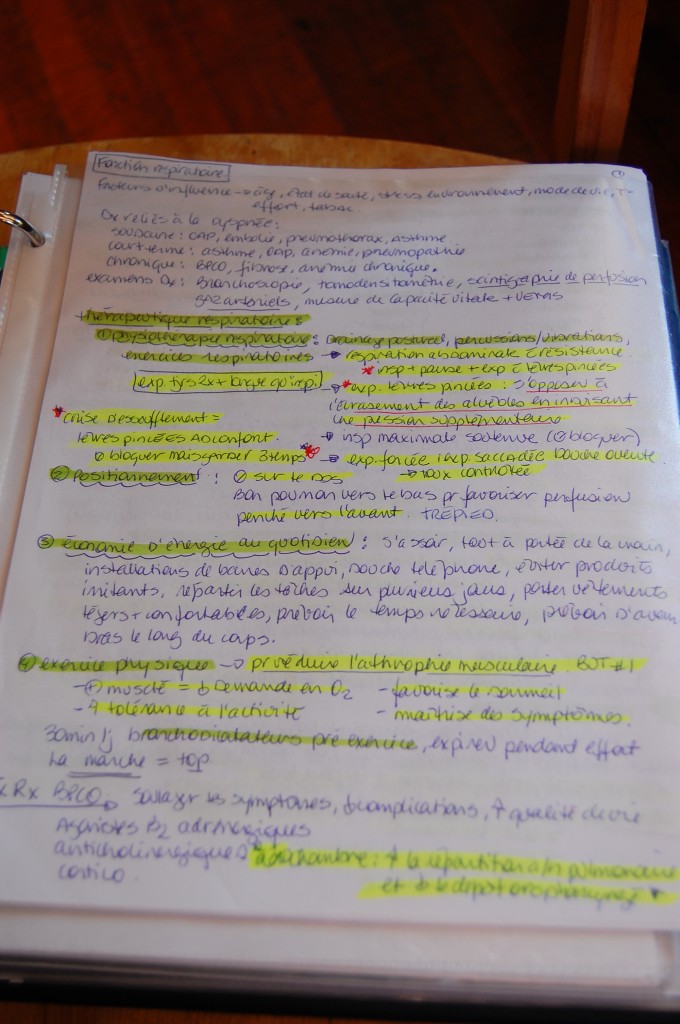 Fonction respiratoire
1
Facteurs d'influence → âge, état de santé, stress, environnement, mode de vie, T°
effort, tabac.
Dx reliés à la dyspnée:
soudaine: OAP, embolie, pneumothorax, asthme
court terme: asthme, OAP, anémie, pneumopathie
chronique: BPCO, fibrose, anémie chronique.
examens Dx: Bronchoscopie, tomodensitométrie, scintigraphie de perfusion
gaz artériels, mesure de capacité vitale + VEMS
thérapeutique respiratoire:
① physiothérapie respiratoire: Drainage postural, percussions/vibrations,
exercices respiratoires → respiration abdominale c̄ résistance
* insp + pause + exp c̄ lèvres pincées
exp. tjrs 2x + longue qu'inspi → * exp. lèvres pincées: s'opposer à
l'écrasement des alvéoles en induisant
une pression supplémentaire
* crise d'essoufflement =
lèvres pincées Ad confort. → insp maximale soutenue (Ø bloquer)
Ø bloquer mais garder 3 temps * → exp. forcée: exp saccadée bouche ouverte
→ toux contrôlée
② Positionnement: Ø sur le dos
Bon poumon vers le bas pr favoriser perfusion
penché vers l'avant. TRÉPIED.
③ économie d'énergie au quotidien: s'assoir, tout à portée de la main,
installations de bancs d'appui, douche téléphone, éviter produits
irritants, répartir les tâches sur plusieurs jours, porter vêtements
légers + confortables, prévoir le temps nécessaire, prévoir d'avoir
bras le long du corps.
④ exercice physique → pr réduire l'athrophie musculaire. BUT #1
- ⊕ musclé = ↓ Demande en O2 - favorise le sommeil
- ↑ tolérance à l'activité - maîtrise des symptômes.
30min/j bronchodilatateurs pré exercice, expirer pendant effort
La marche = top
Rx BPCO: soulager les symptômes, ↓ complications, ↑ qualité de vie
Agonistes B2 adrénergiques
anticholinergiques * aérochambre: ↑ la répartition a/n pulmonaire
cortico. et ↓ le dépôt oropharyngé *